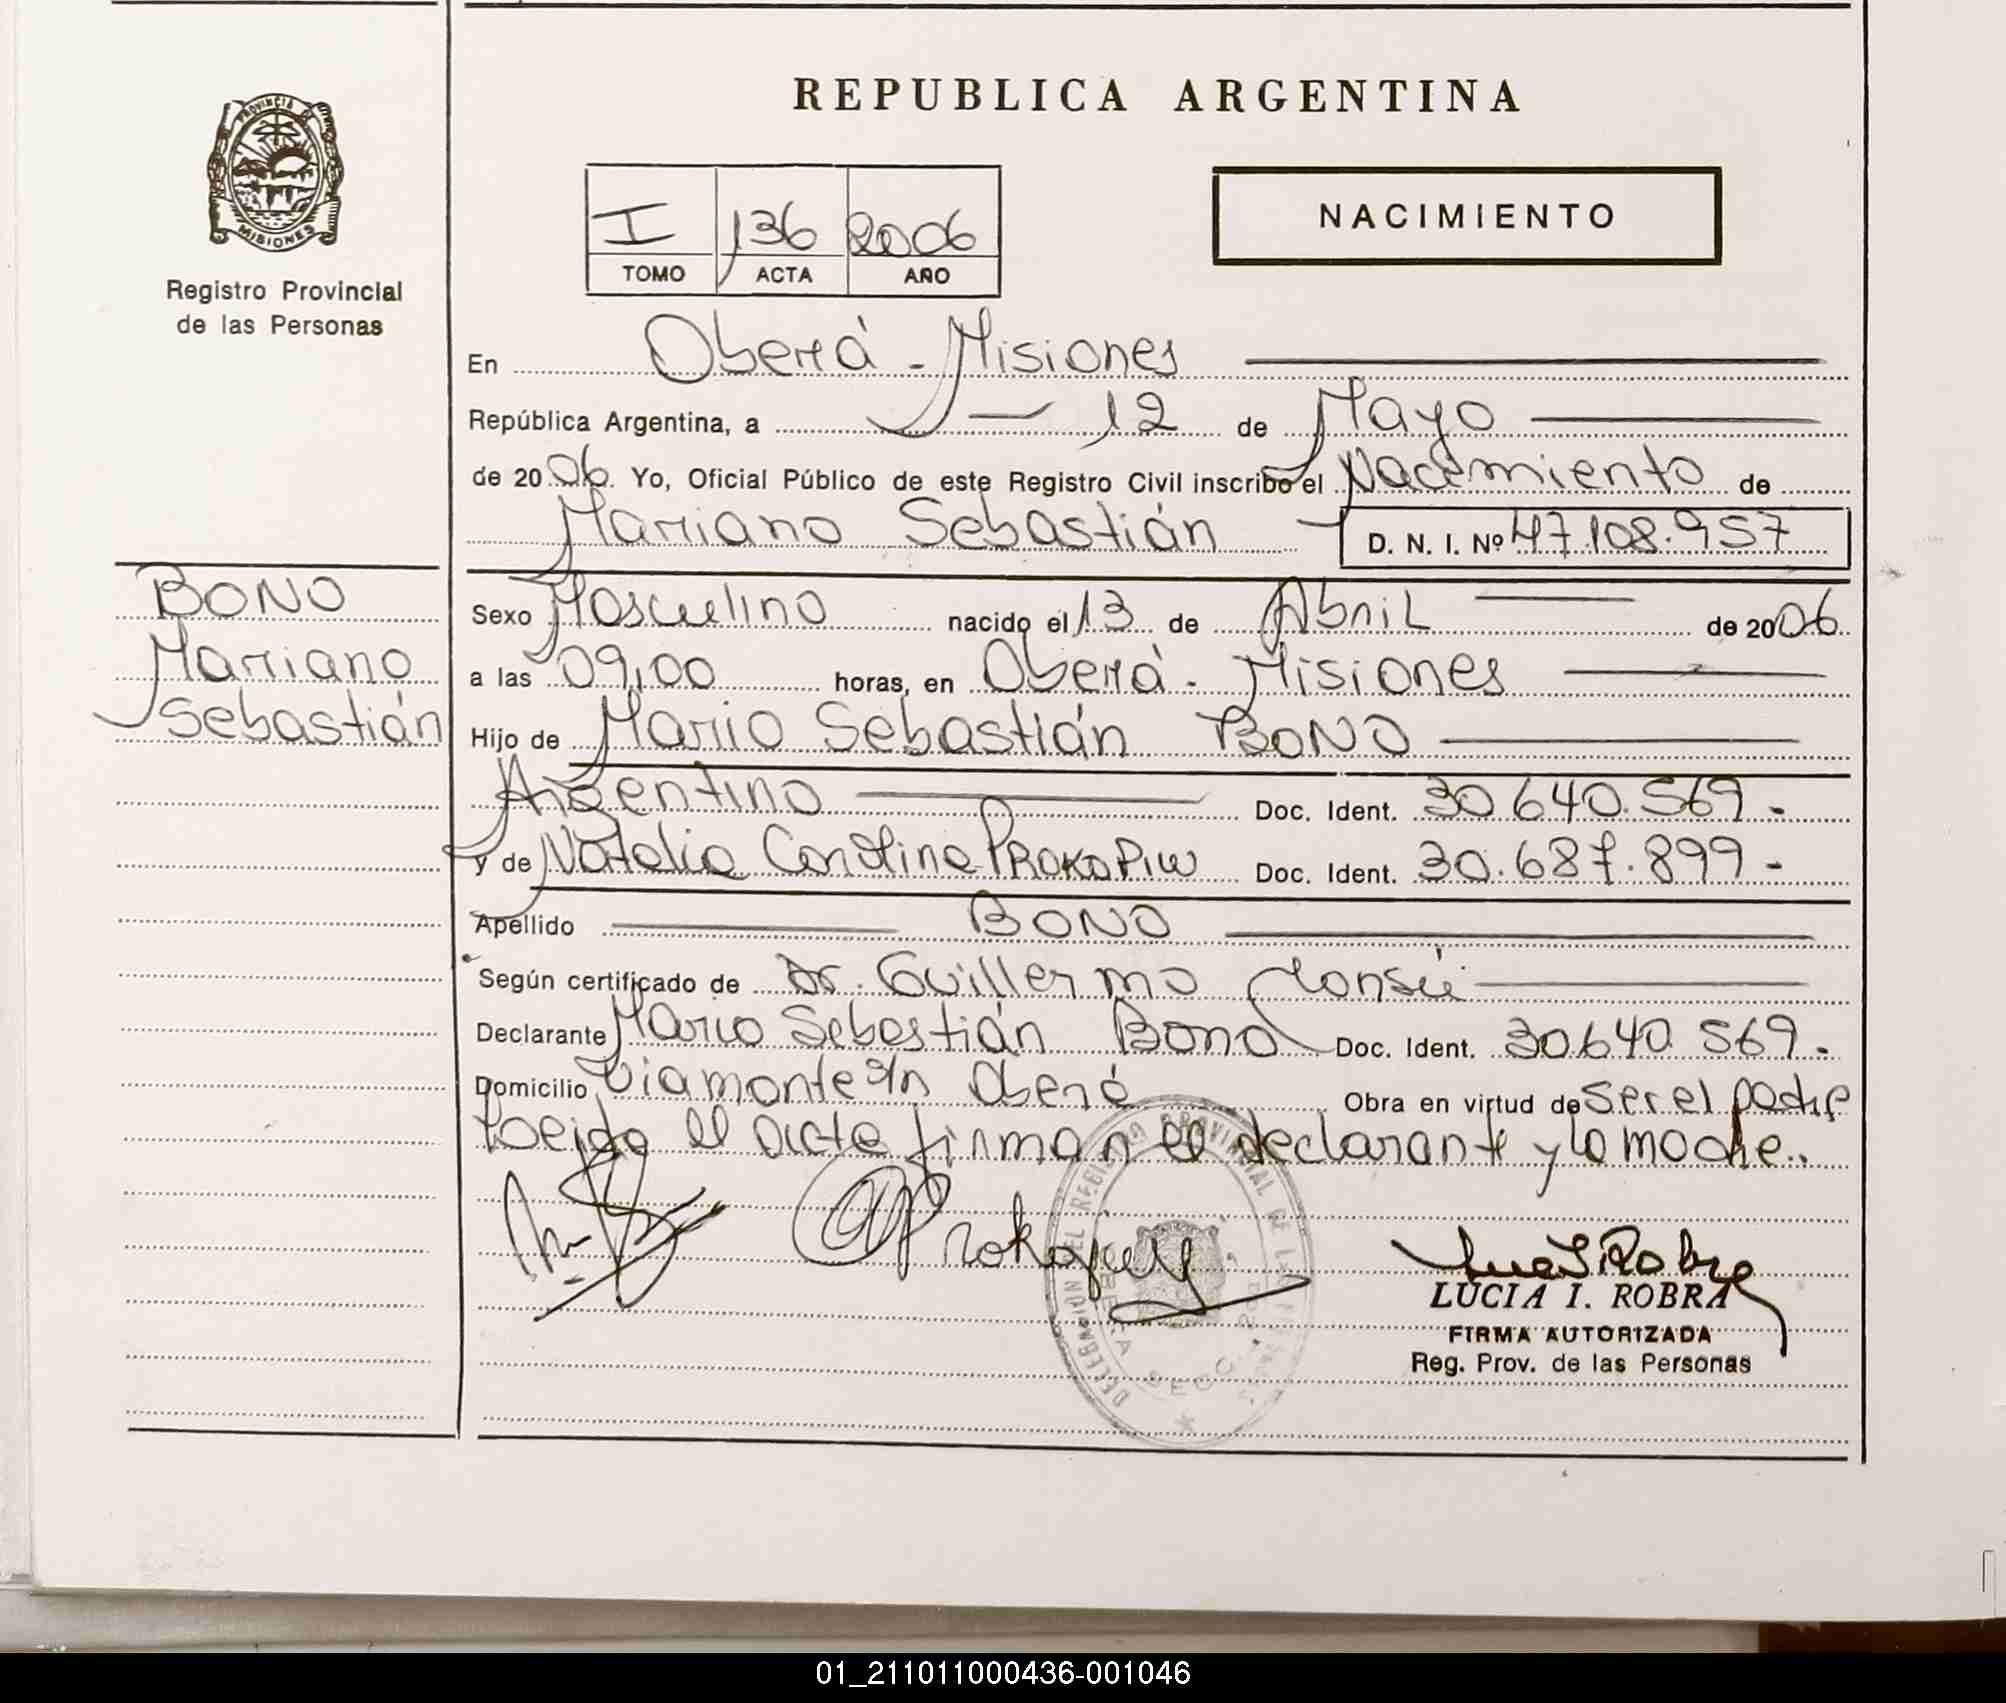 REPUBLICA ARGENTINA
PROVINCIA
MISIONES
Registro Provincial
de las Personas
I 136 2006
TOMO ACTA AÑO
NACIMIENTO
En Oberá - Misiones
República Argentina, a 12 de Mayo
de 2006. Yo, Oficial Público de este Registro Civil inscribo el Nacimiento de
Mariano Sebastián D. N. I. Nº 47.108.957
BONO
Mariano
Sebastián
Sexo Masculino nacido el 13 de Abril de 2006
a las 09,00 horas, en Oberá - Misiones
Hijo de Mario Sebastián BONO
Argentino Doc. Ident. 30.640.569.-
y de Natalia Carolina PROKOPIW Doc. Ident. 30.687.899-
Apellido BONO
Según certificado de Dr. Guillermo
Declarante Mario Sebastián Bono Doc. Ident. 30.640.569.
Domicilio Viamonte s/n Oberá Obra en virtud de ser el padre
Leída el acta firman el declarante y la madre.
Prokopiw
LUCIA I. ROBRA
FIRMA AUTORIZADA
Reg. Prov. de las Personas
01_211011000436-001046